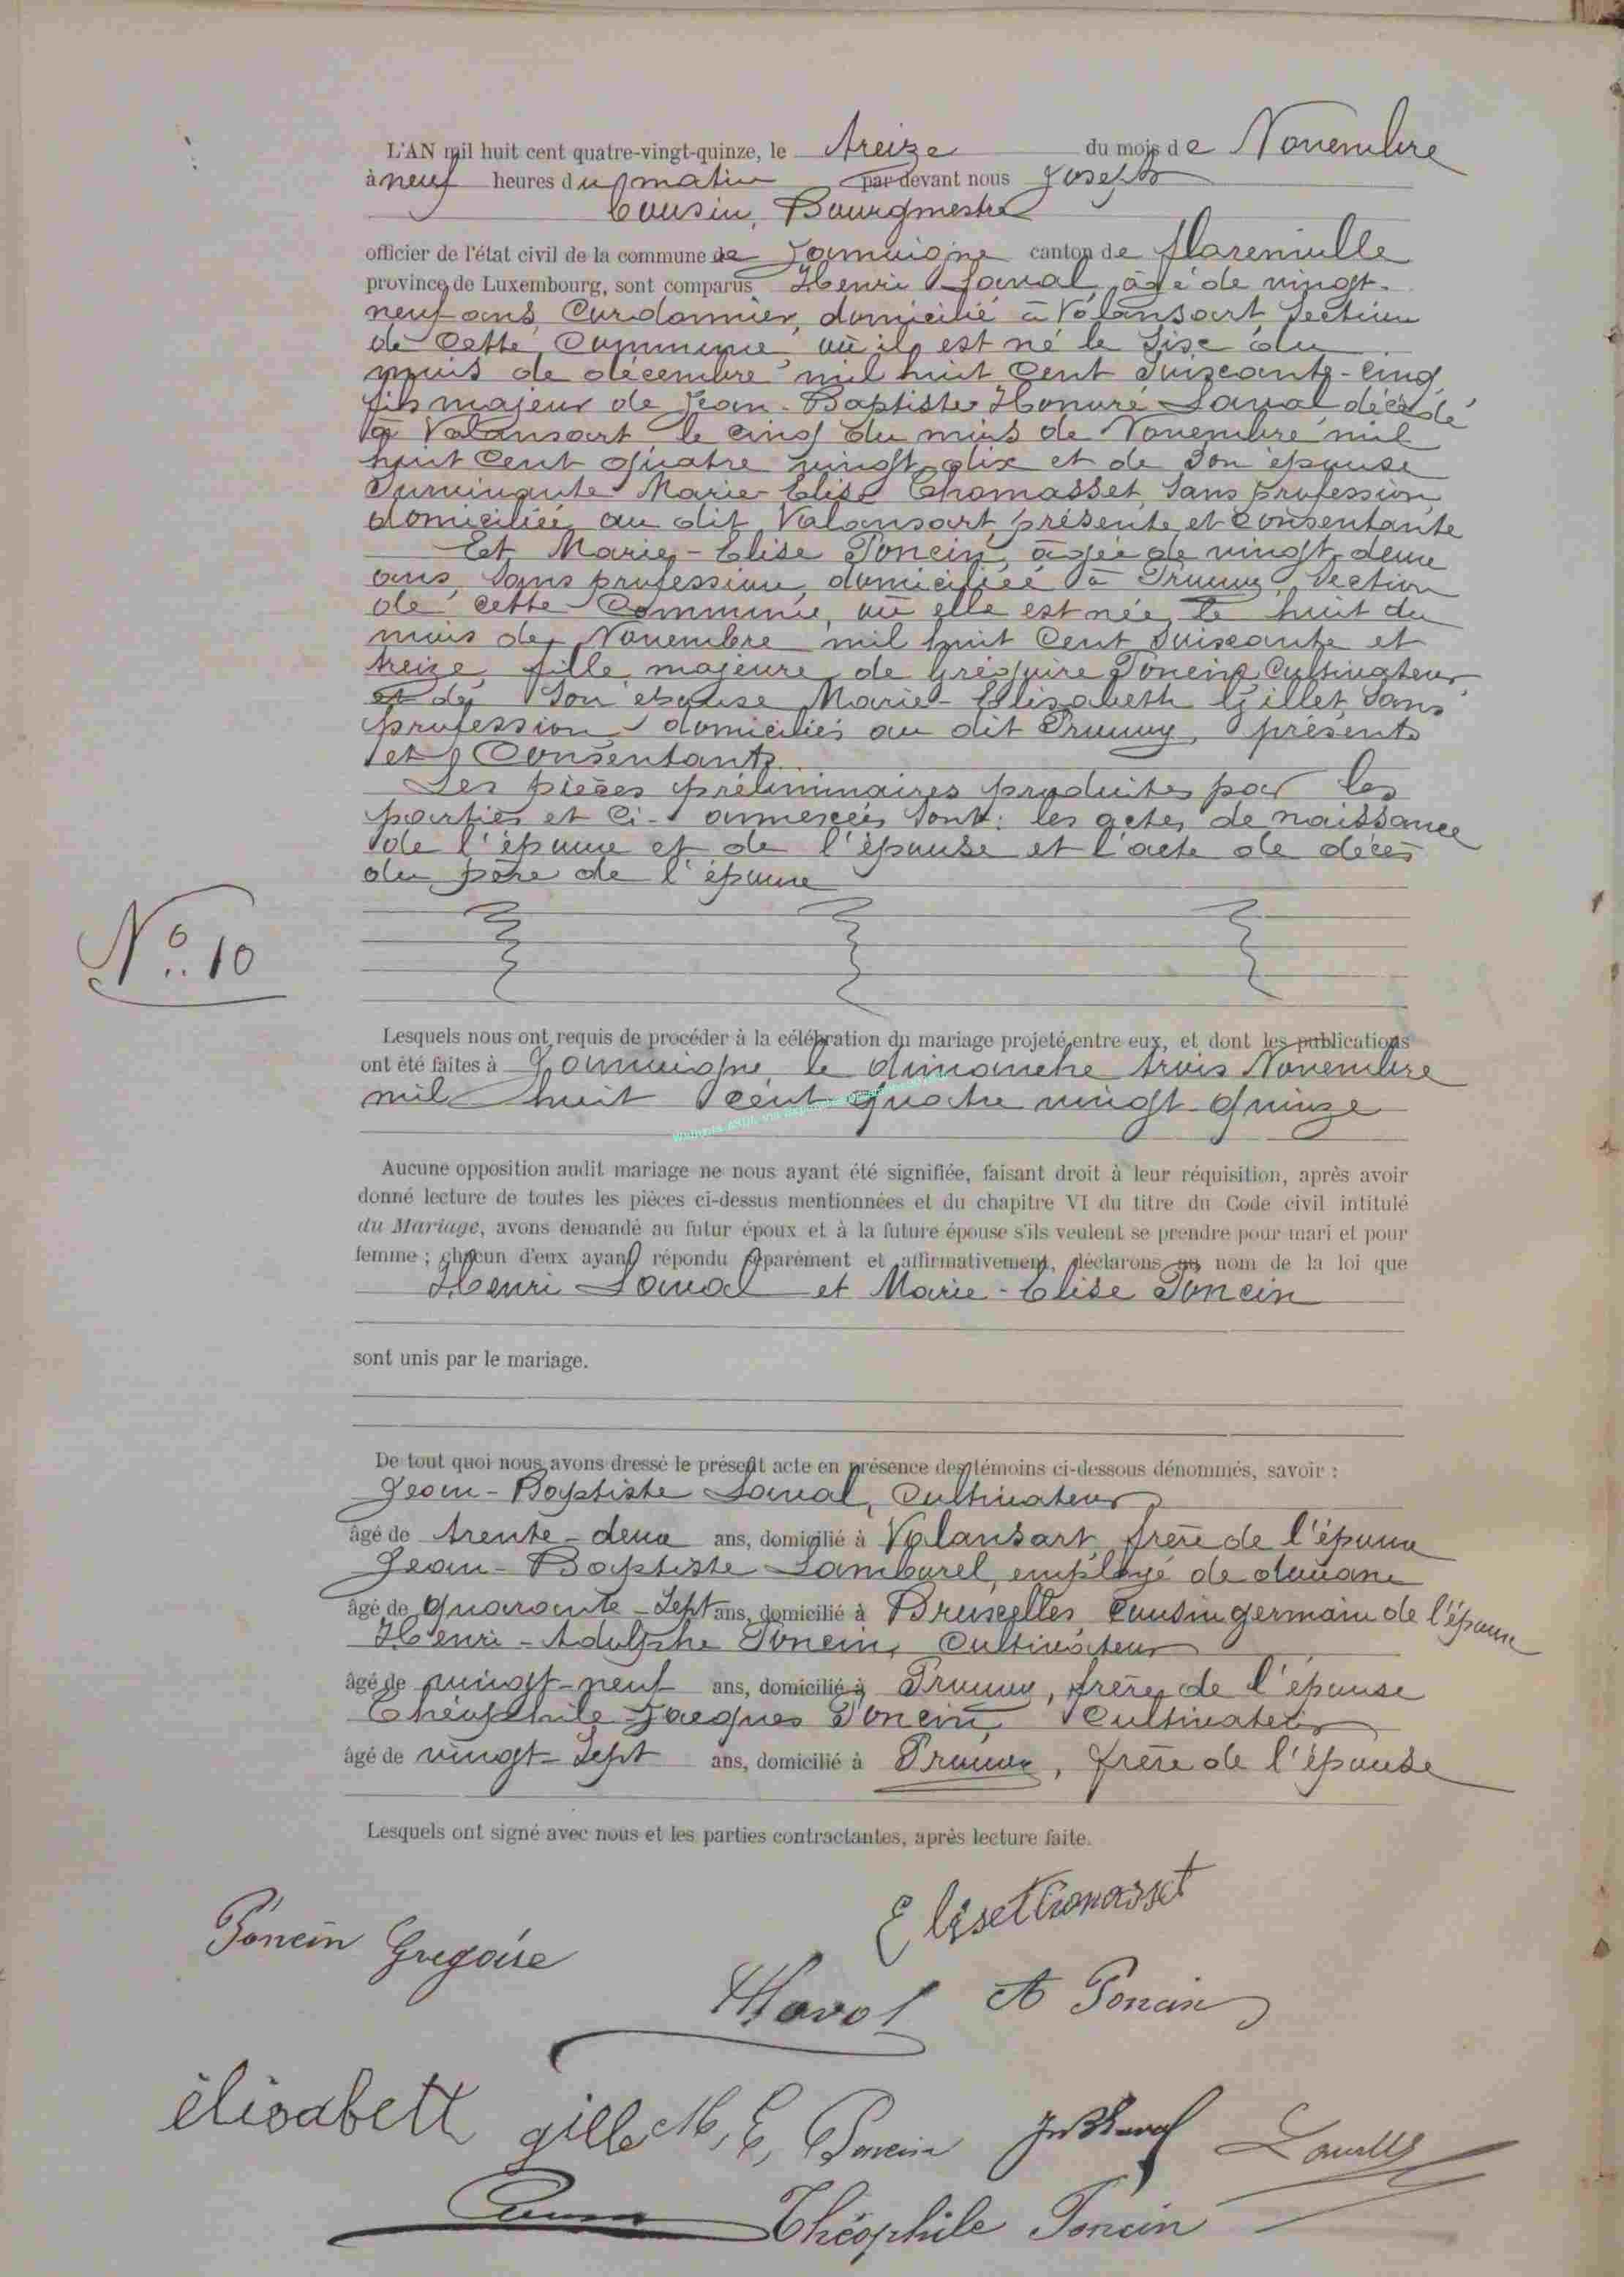 L'AN mil huit cent quatre-vingt-quinze, le treize du mois de Novembre
à neuf heures du matin par devant nous Joseph
Cousin, Bourgmestre
officier de l'état civil de la commune de Jamoigne canton de Florenville
province de Luxembourg, sont comparus Henri Laval, âgé de vingt-
neuf ans, Cordonnier, domicilié à Valansart, Section
de cette Commune, où il est né le Six du
mois de décembre mil huit Cent Soixante-Cinq,
fils majeur de Jean-Baptiste Honoré Laval décédé
à Valansart le cinq du mois de Novembre mil
huit Cent quatre vingt-dix et de Son épouse
Survivante Marie-Elise Thomasset, Sans profession,
domiciliée au dit Valansart, présente et Consentante
Et Marie-Elise Poncin, âgée de vingt-deux
ans, Sans profession, domiciliée à Prouvy, Section
de cette Commune, où elle est née, le huit du
mois de Novembre mil huit Cent Soixante et
treize, fille majeure de Grégoire Poncin, Cultivateur,
et de Son épouse Marie-Elisabeth Gillet, Sans
profession, domiciliés au dit Prouvy, présents
et Consentants.
Les pièces préliminaires produites par les
parties et Ci-annexées Sont: les actes de naissance
de l'époux et de l'épouse et l'acte de décès
du père de l'époux
Nº 10
Lesquels nous ont requis de procéder à la célébration du mariage projeté entre eux, et dont les publications
ont été faites à Jamoigne, le dimanche trois Novembre
mil huit cent quatre vingt-quinze
Aucune opposition audit mariage ne nous ayant été signifiée, faisant droit à leur réquisition, après avoir
donné lecture de toutes les pièces ci-dessus mentionnées et du chapitre VI du titre du Code civil intitulé
du Mariage, avons demandé au futur époux et à la future épouse s'ils veulent se prendre pour mari et pour
femme ; chacun d'eux ayant répondu séparément et affirmativement, déclarons au nom de la loi que
Henri Laval et Marie-Elise Poncin
sont unis par le mariage.
De tout quoi nous avons dressé le présent acte en présence des témoins ci-dessous dénommés, savoir :
Jean-Baptiste Laval, Cultivateur
âgé de trente-deux ans, domicilié à Valansart, frère de l'époux
Jean-Baptiste Lamborel, employé de douane
âgé de quarante-Sept ans, domicilié à Bruxelles Cousin germain de l'époux
Henri-Adolphe Poncin, Cultivateur
âgé de vingt-neuf ans, domicilié à Prouvy, frère de l'épouse
Théophile-Jacques Poncin, Cultivateur
âgé de vingt-Sept ans, domicilié à Prouvy, frère de l'épouse
Lesquels ont signé avec nous et les parties contractantes, après lecture faite.
Elise Thomasset
Poncin Gregoire
HLaval A Poncin
élisabeth gille M, E, Poncin JnBLaval
Théophile Poncin